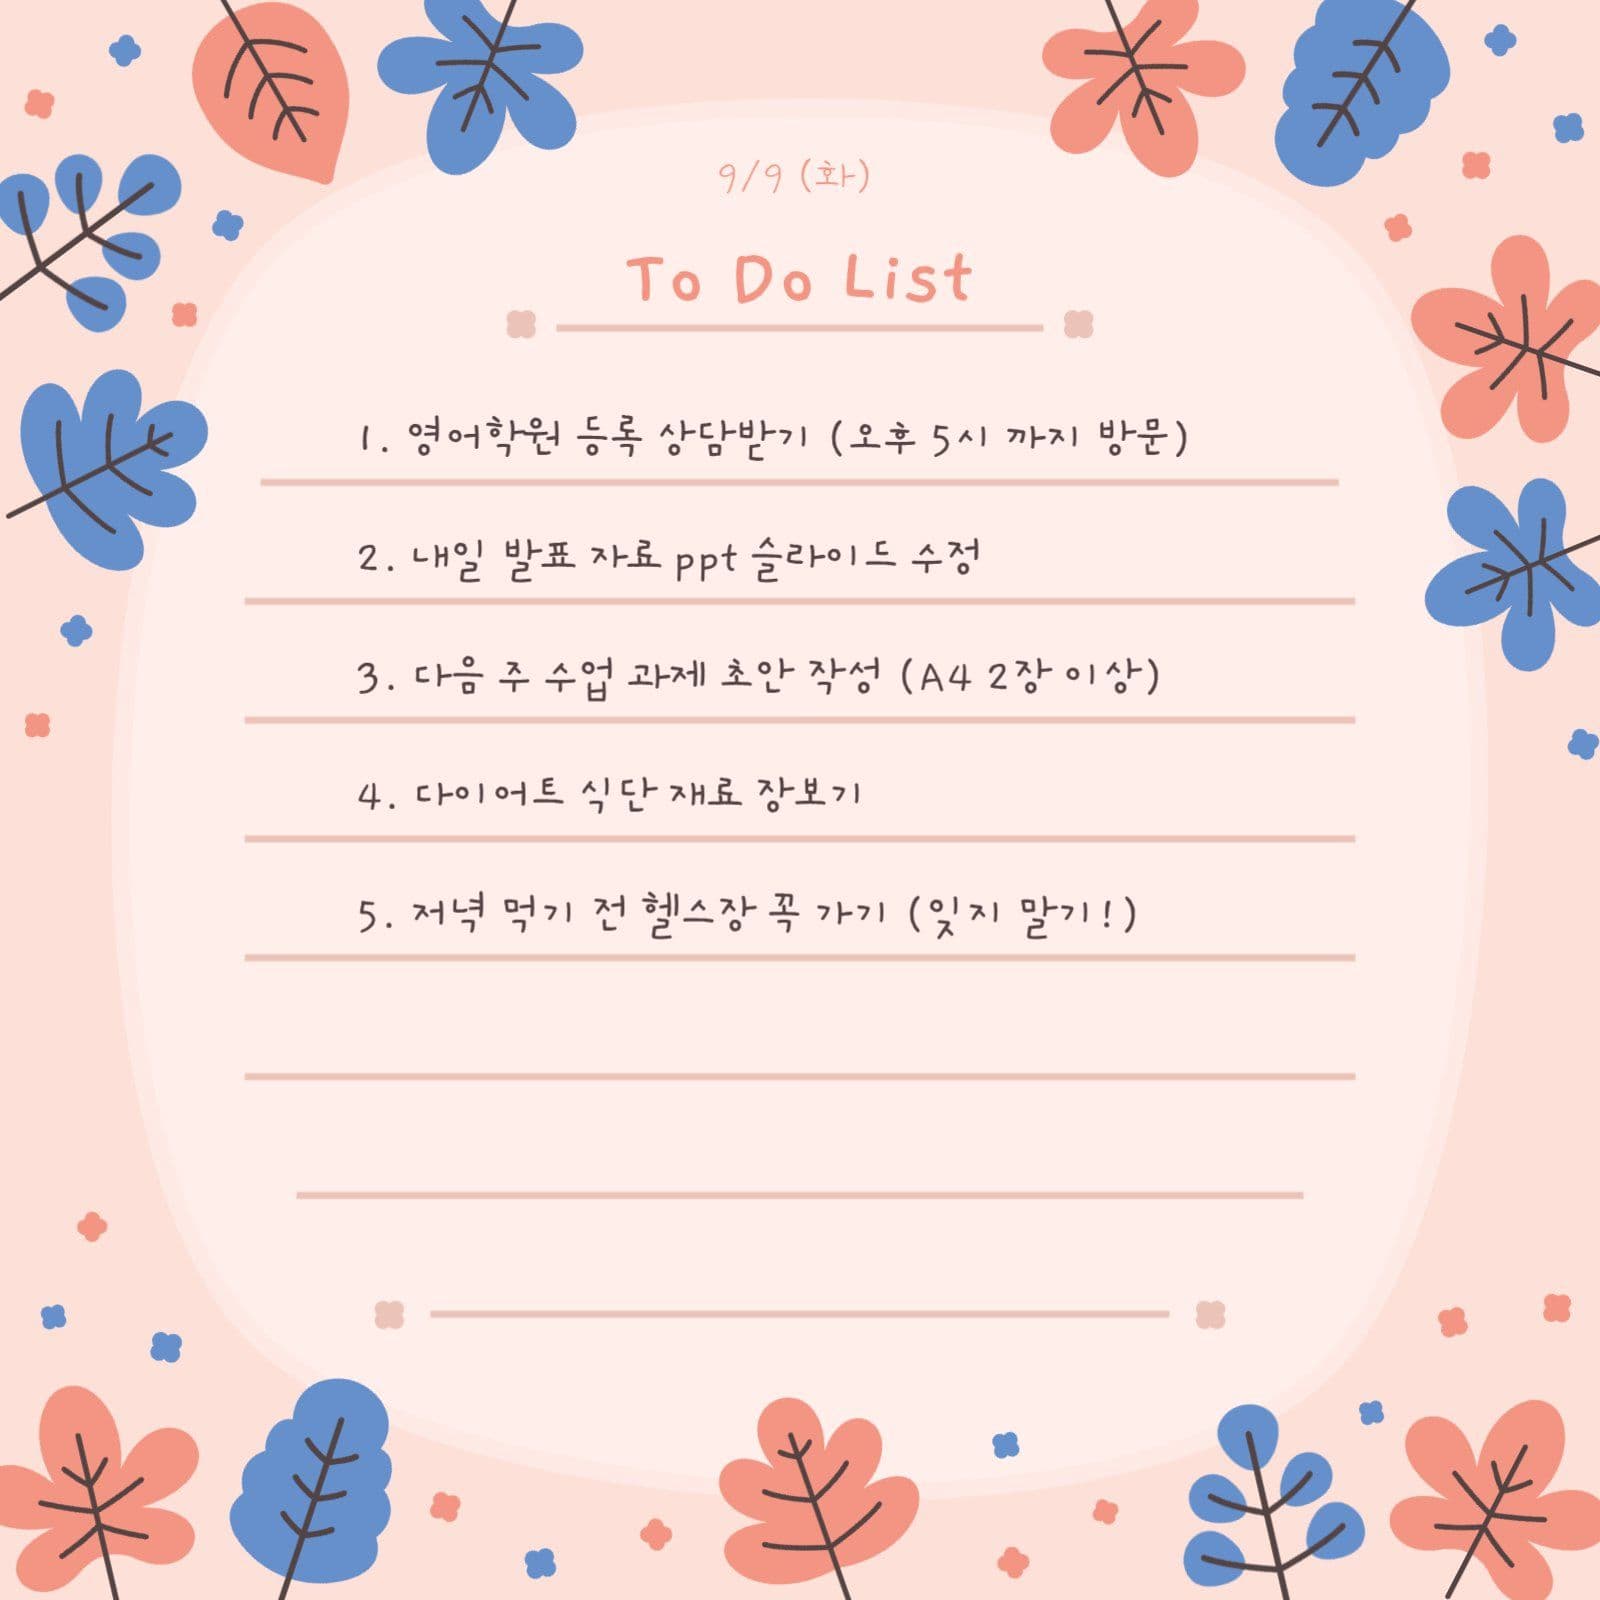 9/9 (화)
To Do List
1. 영어학원 등록 상담받기 (오후 5시 까지 방문)
2. 내일 발표 자료 ppt 슬라이드 수정
3. 다음 주 수업 과제 초안 작성 (A4 2장 이상)
4. 다이어트 식단 재료 장보기
5. 저녁 먹기 전 헬스장 꼭 가기 (잊지 말기!)